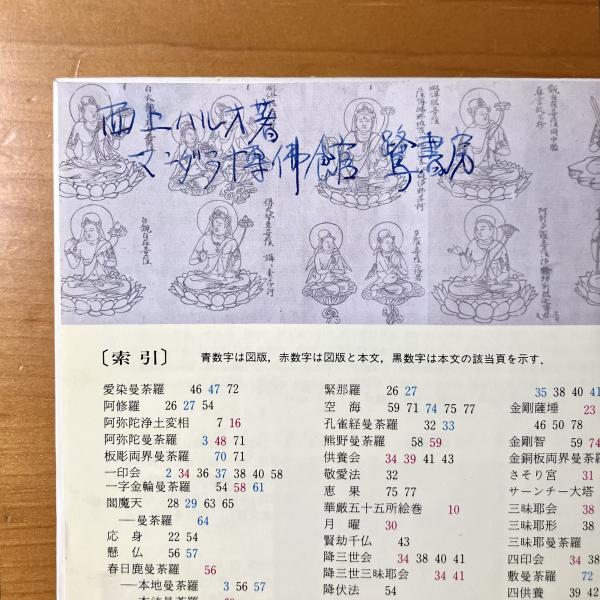 西上ハルオ著
マンダラ博佛館 鷺書房
白衣観音
白観自在菩薩
〔索引〕 青数字は図版，赤数字は図版と本文，黒数字は本文の該当頁を示す．
愛染曼荼羅 46 47 72
阿修羅 26 27 54
阿弥陀浄土変相 7 16
阿弥陀曼荼羅 3 48 71
板彫両界曼荼羅 70 71
一印会 2 34 36 37 38 40 58
一字金輪曼荼羅 54 58 61
閻魔天 28 29 63 65
―曼荼羅 64
応身 22 54
懸仏 56 57
春日鹿曼荼羅 56
―本地曼荼羅 3 56 57
緊那羅 26 27
空海 59 71 74 75 77
孔雀経曼荼羅 32 33
熊野曼荼羅 58 59
供養会 34 39 41 43
敬愛法 32
恵果 75 77
華厳五十五所絵巻 10
月曜 30
賢劫千仏 43
降三世会 34 38 40 41
降三世三昧耶会 34 41
降伏法 54
35 38 40 41
金剛薩埵 23
46 50 78
金剛智 59 74
金銅板両界曼荼羅
さそり宮 31
サーンチー大塔
三昧耶会 38
三昧耶形 38
三昧耶曼荼羅
四印会 34 38
敷曼荼羅 72
四供養 39 42